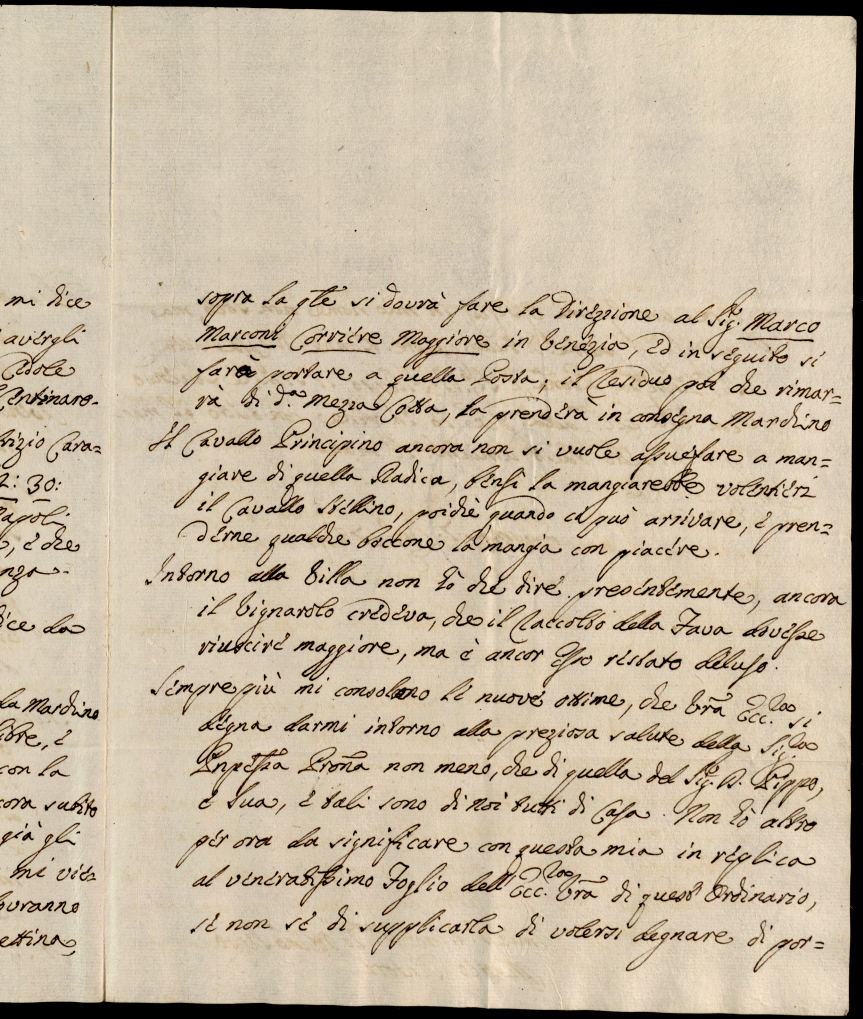 mi dice
avergli
Cedole
Centinaro-
rizio Cara=
2: 30:
Napoli
, è che
nza.
dice da
la Marchino
libre, è
con la
cora subito
già gli
mi vie=
ouranno
ettina,
sopra la qle si dovrà fare la Direzzione al Sig.r Marco
Marconi Corriere Maggiore in Venezia, ed in seguito si
farà portare a quella Posta; il residuo poi che rimar=
rà di d.a Mezza Cotta, la prenderà in consegna Marchino
Il Cavallo Principino ancora non si vuole assuefare a man=
giare di quella Radica, bensì la mangiarebbe volentieri
il Cavallo Stellino, poichè quando ci può arrivare, è pren=
derne qualche boccone la mangia con piacere.
Intorno alla Villa non hò che dire presentemente, ancora
il Vignarolo credeva, che il raccolto della Fava dovesse
riuscire maggiore, ma è ancor Esso restato deluso.
Sempre più mi consolano le nuove ottime, che Vra Ecc.za si
degna darmi intorno alla preziosa salute della Sig.ra
Pnpessa Prona non meno, che di quella del Sig. D. Pippo,
e Sua, è tali sono di noi tutti di Casa. Non hò altro
per ora da significare con questa mia in replica
al veneratissimo Foglio dell'Ecc.za Vra di quest'Ordinario,
se non se di supplicarla di volersi degnare di por=